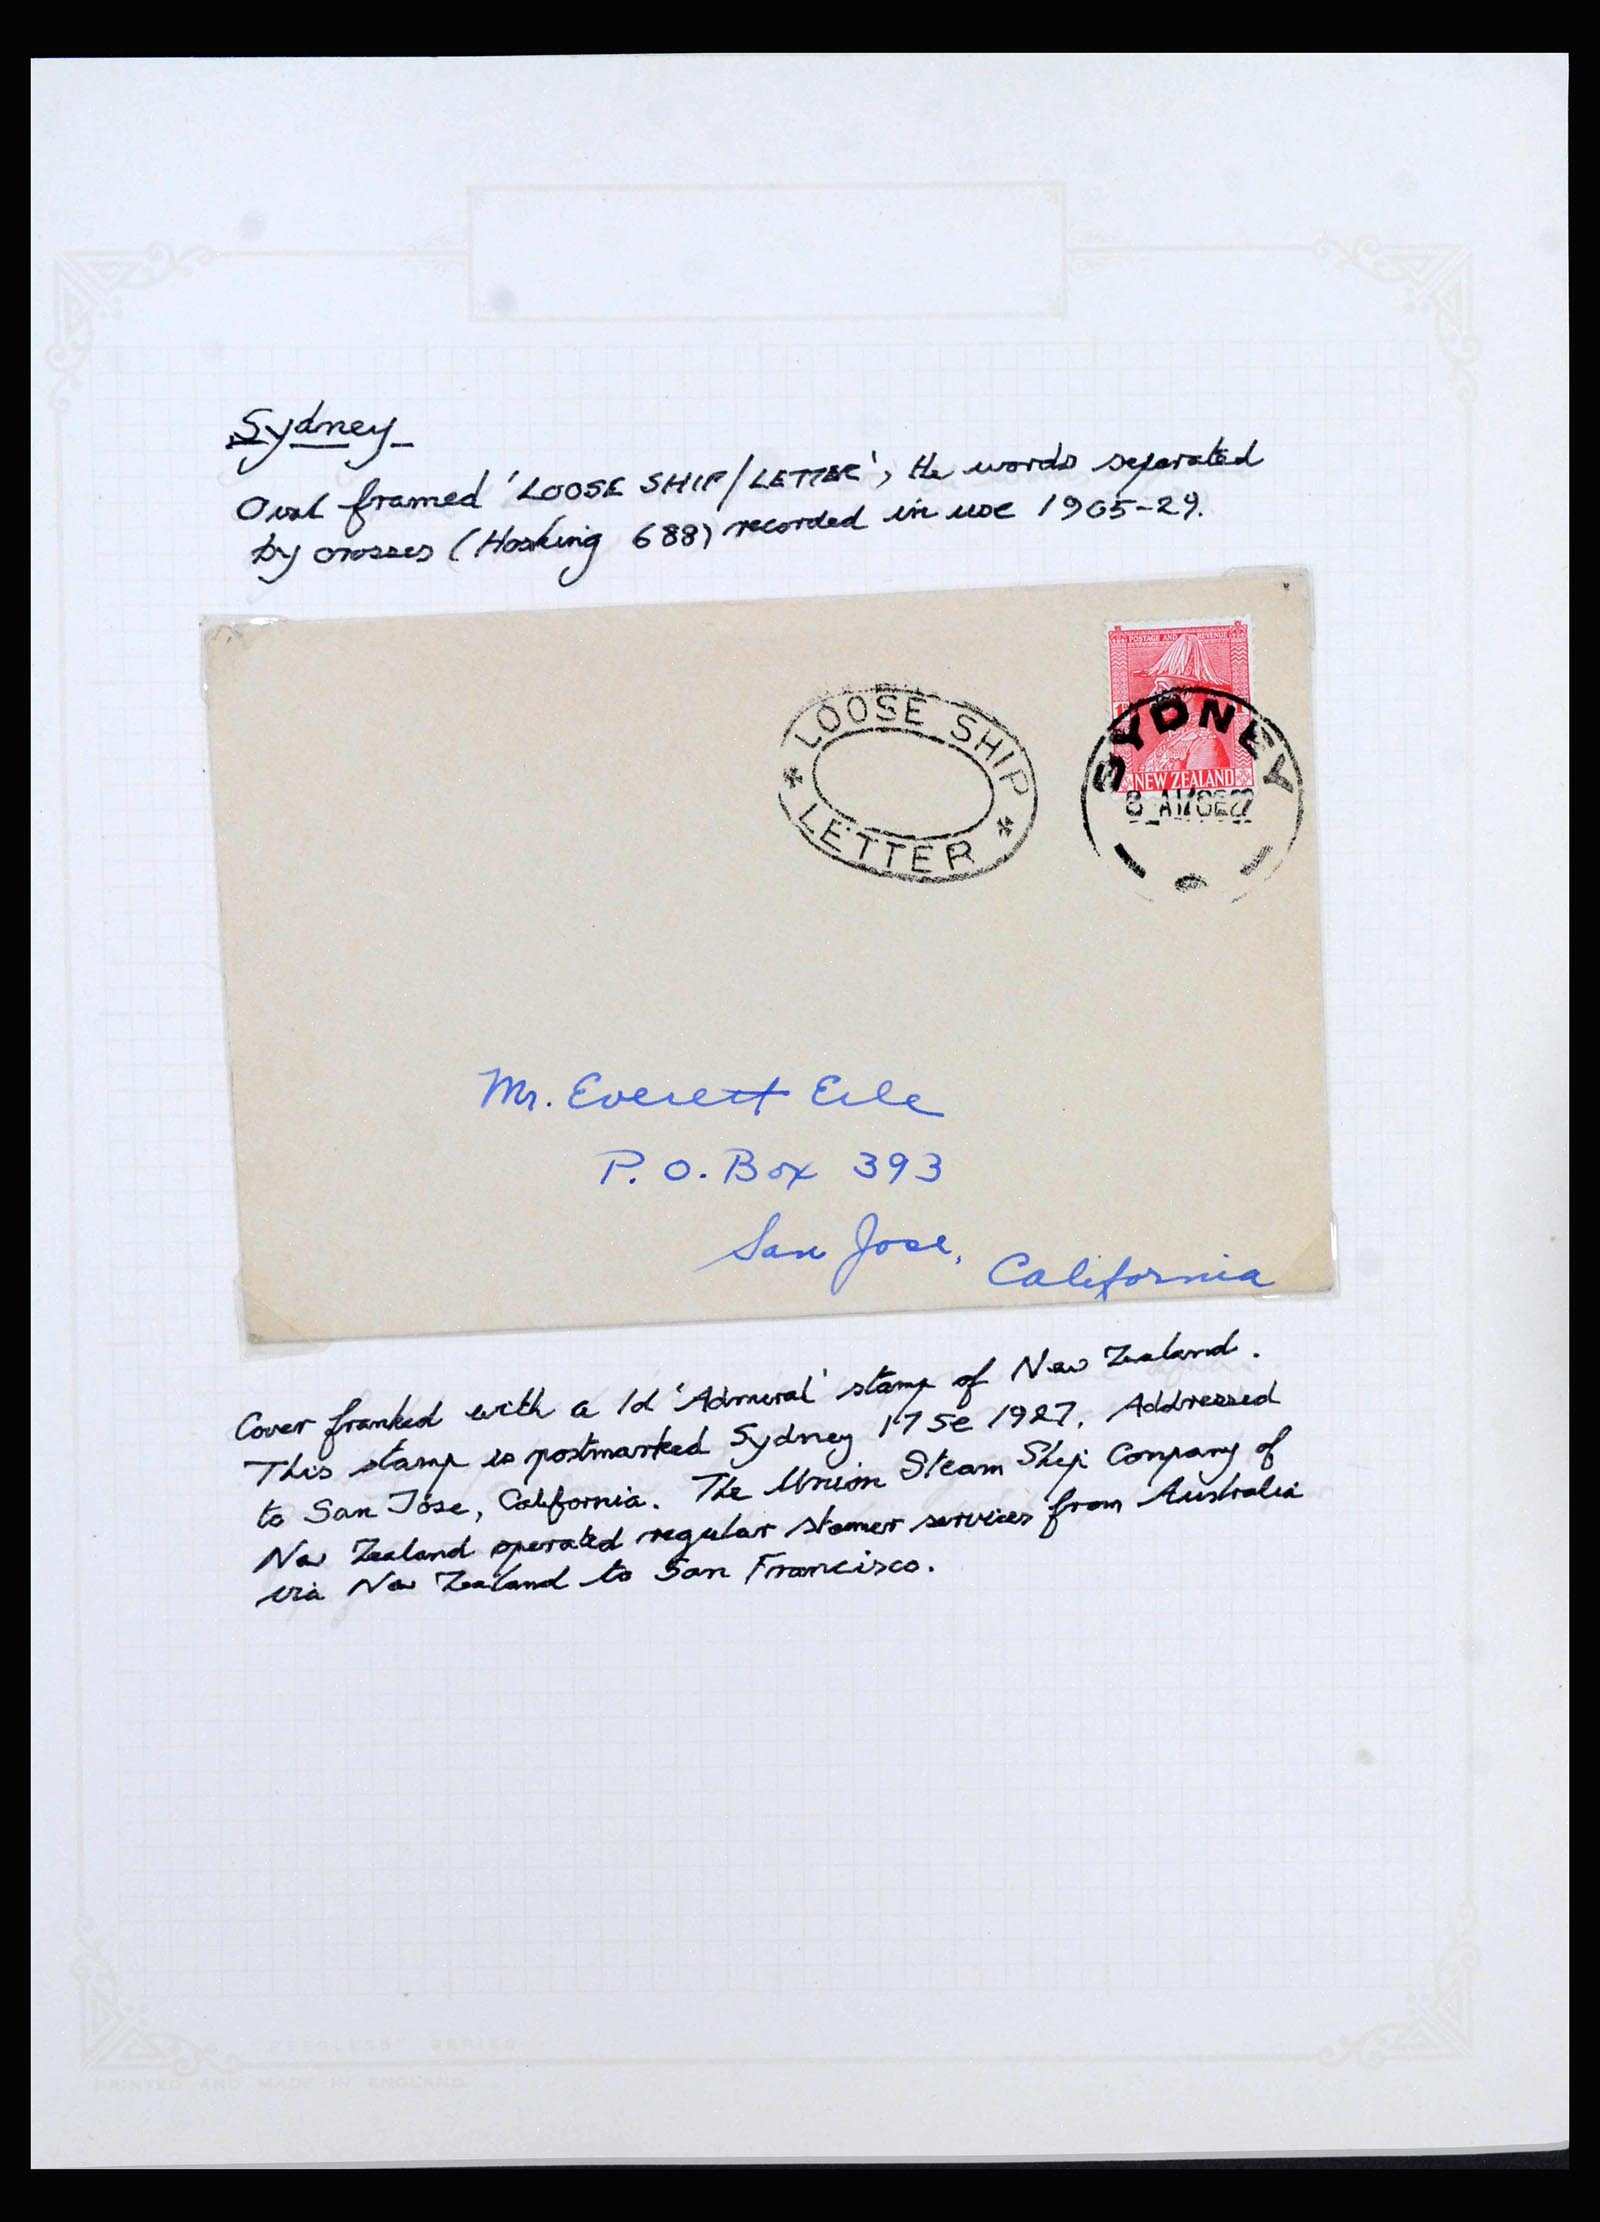 Sydney
Oval framed 'LOOSE SHIP/LETTER', the words separated
by crosses (Hosking 688) recorded in use 1905-29.
POSTAGE AND REVENUE
NEW ZEALAND
SYDNEY
LOOSE SHIP
LETTER
Mr. Everett Erle
P.O. Box 393
San Jose,
California
Cover franked with a 1d 'Admiral' stamp of New Zealand.
This stamp is postmarked Sydney 17 Se 1927. Addressed
to San Jose, California. The Union Steam Ship Company of
New Zealand operated regular steamer services from Australia
via New Zealand to San Francisco.
"PEERLESS" SERIES
PRINTED AND MADE IN ENGLAND